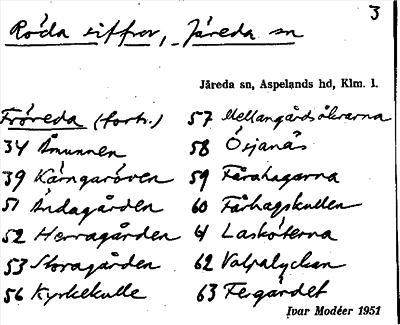 3
Röda siffror, Järeda sn
Järeda sn, Aspelands hd, Klm. l.
Fröreda (forts.)
34 Åmunnen
39 Kärngaröven
51 Ändagården
52 Herragården
53 Storagården
56 Kyrkekulle
57 Mellangårdsåkrarna
58 Ösjanäs
59 Fårahagarna
60 Fårhagskullen
61 Lasköterna
62 Valpalyckan
63 Fergärdet
Ivar Modéer 1951